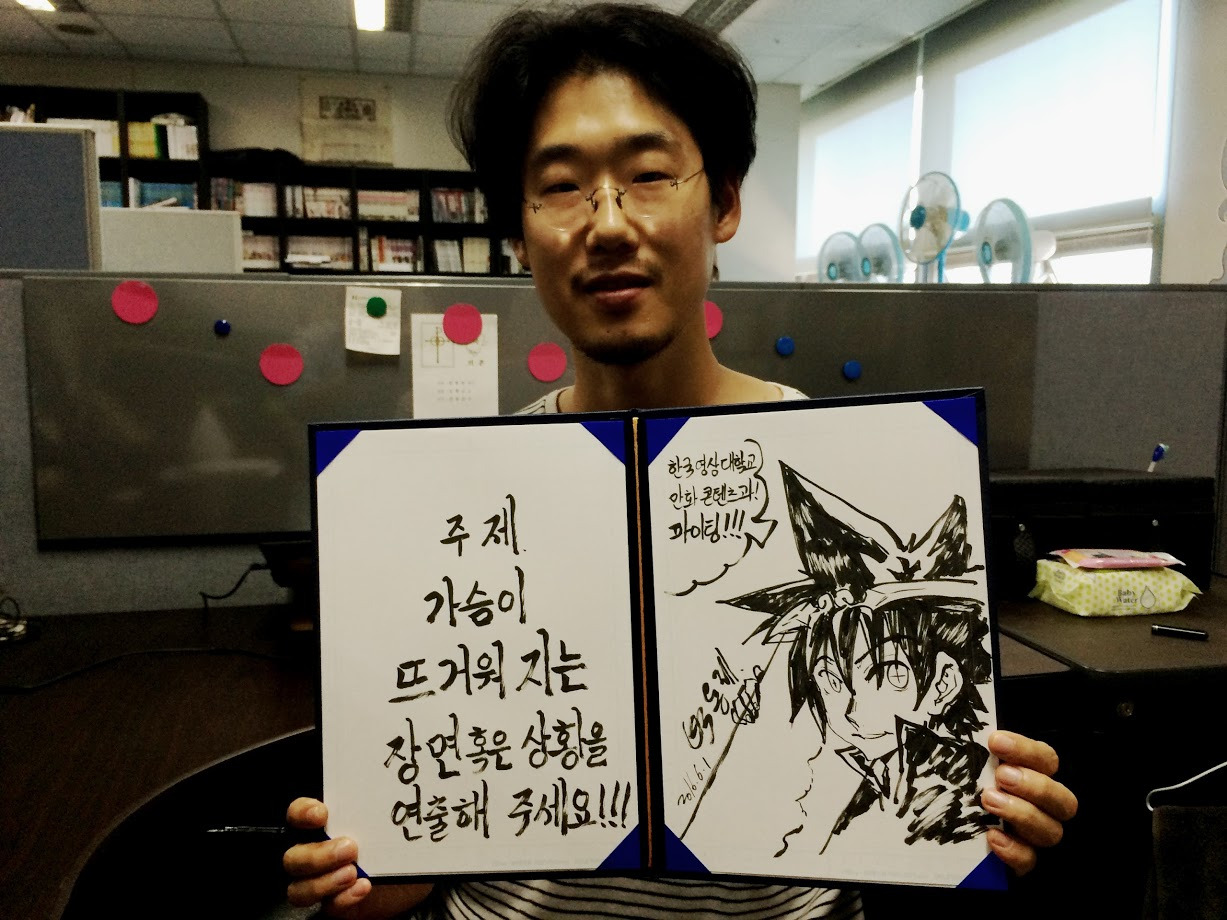 주제
가슴이
뜨거워 지는
장면 혹은 상황을
연출해 주세요!!!
한국영상대학교
만화콘텐츠과!
파이팅!!!
2016.6.1
Baby
Water